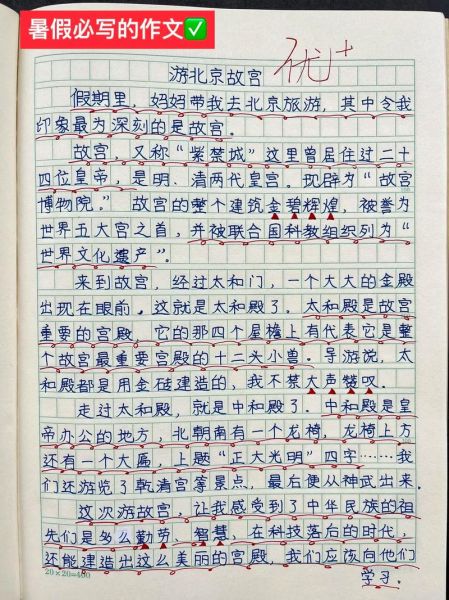 暑假必写的作文✅
游北京故宫
优+
假期里，妈妈带我去北京旅游，其中令我
印象最为深刻的是故宫。
故宫，又称“紫禁城”这里曾居住过二十
四位皇帝，是明、清两代皇宫。现辟为“故宫
博物院。”故宫的整个建筑金碧辉煌，被誉为
世界五大宫之首，并被联合国科教组织列为“
世界文化遗产”。
来到故宫，经过太和门，一个大大的金殿
出现在眼前。这就是太和殿了。太和殿是故宫
重要的宫殿，它的那四个屋檐上有代表它是整
个故宫最重要宫殿的十二头小兽。导游说，太
和殿都是用金砖建造的，我不禁大声赞叹。
走过太和殿，就是中和殿了。中和殿是皇
帝办公的地方，北朝南有一个龙椅，龙椅上方
还有一个大匾，上题“正大光明”四字……我
们还游览了乾清宫等景点，最后便从神武出来。
这次游故宫，让我感受到了中华民族的祖
先们是多么勤劳、智慧，在科技落后的时代，
还能建造出这么美丽的宫殿，我们应该向他们
学习。
20×20=400